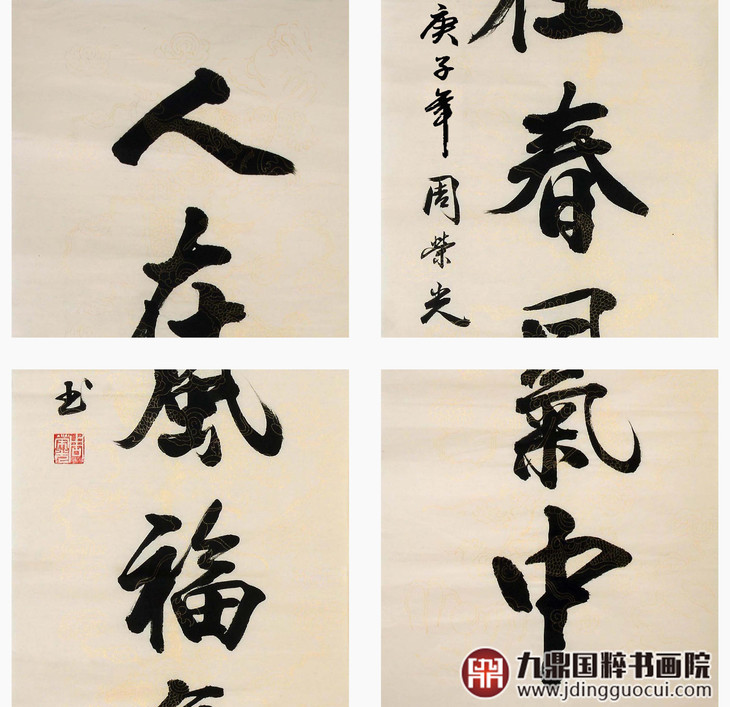 人在
在春風
庚子年周荣光
風福氣
书
氣中
九鼎国粹书画院
www.jdingguocui.com